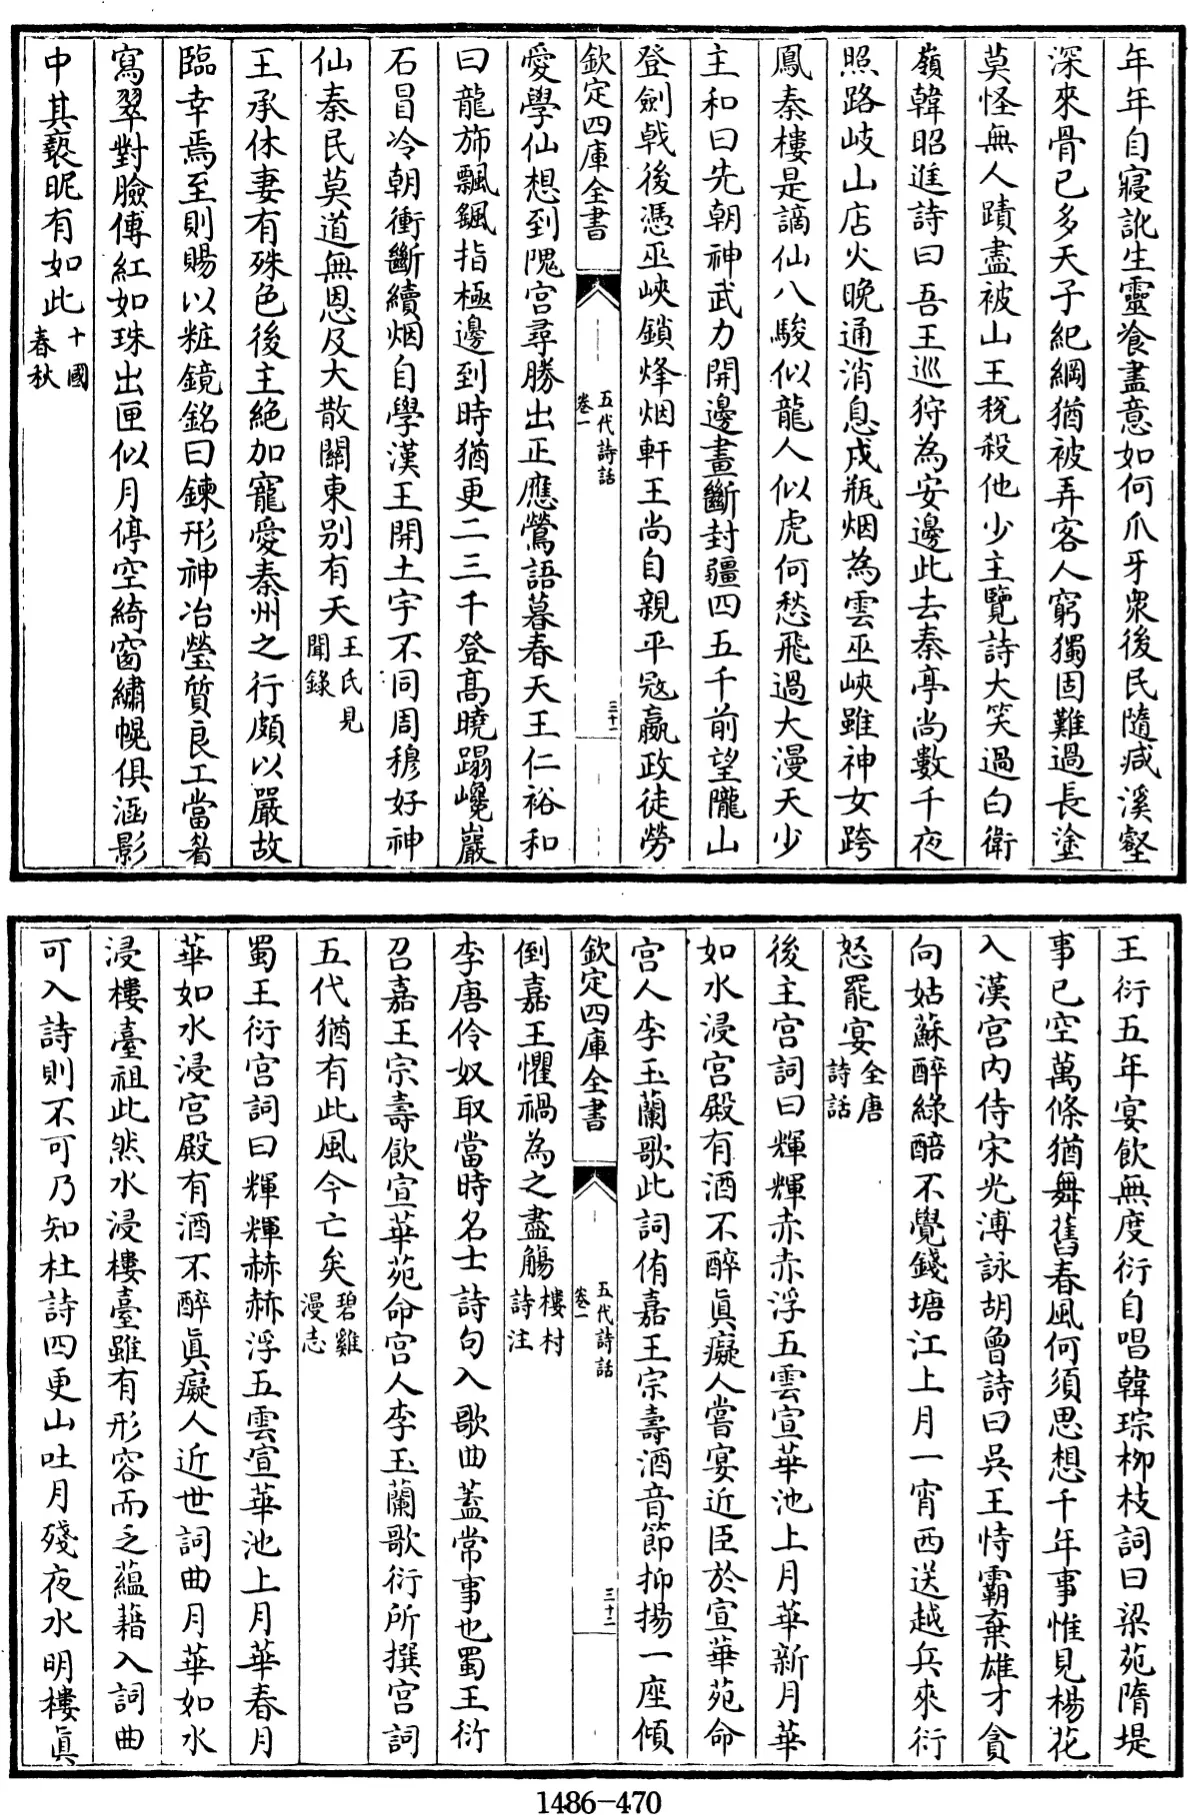 年年自寢訛生靈飡盡意如何爪牙衆後民隨减溪壑
深來骨已多天子紀綱猶被弄客人窮獨固難過長塗
莫怪無人蹟盡被山王稅殺他少主覽詩大笑過白衛
嶺韓昭進詩曰吾王巡狩為安邊此去秦亭尚數千夜
照路岐山店火晚通消息戍瓶烟為雲巫峽雖神女跨
鳳秦樓是謫仙八駿似龍人似虎何愁飛過大漫天少
主和曰先朝神武力開邊畫斷封疆四五千前望隴山
登劍戟後憑巫峽鎖烽烟軒王尚自親平寇嬴政徒勞
欽定四庫全書
五代詩話
卷一
三十一
愛學仙想到隗宫尋勝出正應鶯語暮春天王仁裕和
曰龍斾飄颻指極邊到時猶更二三千登髙曉蹋巉巖
石冒冷朝衝斷續烟自學漢王開土宇不同周穆好神
仙秦民莫道無恩及大散關東别有天王氏見
聞錄
王承休妻有殊色後主絶加寵愛秦州之行頗以嚴故
臨幸焉至則賜以粧鏡銘曰鍊形神冶瑩質良工當眉
寫翠對臉傅紅如珠出匣似月停空綺窗繡幌俱涵影
中其褻昵有如此十國
春秋
王衍五年宴飲無度衍自唱韓琮栁枝詞曰梁苑隋堤
事已空萬條猶舞舊春風何須思想千年事惟見楊花
入漢宫内侍宋光溥詠胡曾詩曰吳王恃霸棄雄才貪
向姑蘇醉綠醅不覺錢塘江上月一宵西送越兵來衍
怒罷宴全唐
詩話
後主宫詞曰輝輝赤赤浮五雲宣華池上月華新月華
如水浸宫殿有酒不醉眞癡人嘗宴近臣於宣華苑命
宫人李玉蘭歌此詞侑嘉王宗壽酒音節抑揚一座傾
欽定四庫全書
五代詩話
卷一
三十二
倒嘉王懼禍為之盡觴樓村
詩注
李唐伶奴取當時名士詩句入歌曲蓋常事也蜀王衍
召嘉王宗壽飲宣華苑命宫人李玉蘭歌衍所撰宫詞
五代猶有此風今亡矣碧雞
漫志
蜀王衍宫詞曰輝輝赫赫浮五雲宣華池上月華春月
華如水浸宫殿有酒不醉眞癡人近世詞曲月華如水
浸樓臺祖此然水浸樓臺雖有形容而乏蘊藉入詞曲
可入詩則不可乃知杜詩四更山吐月殘夜水明樓眞
1486-470